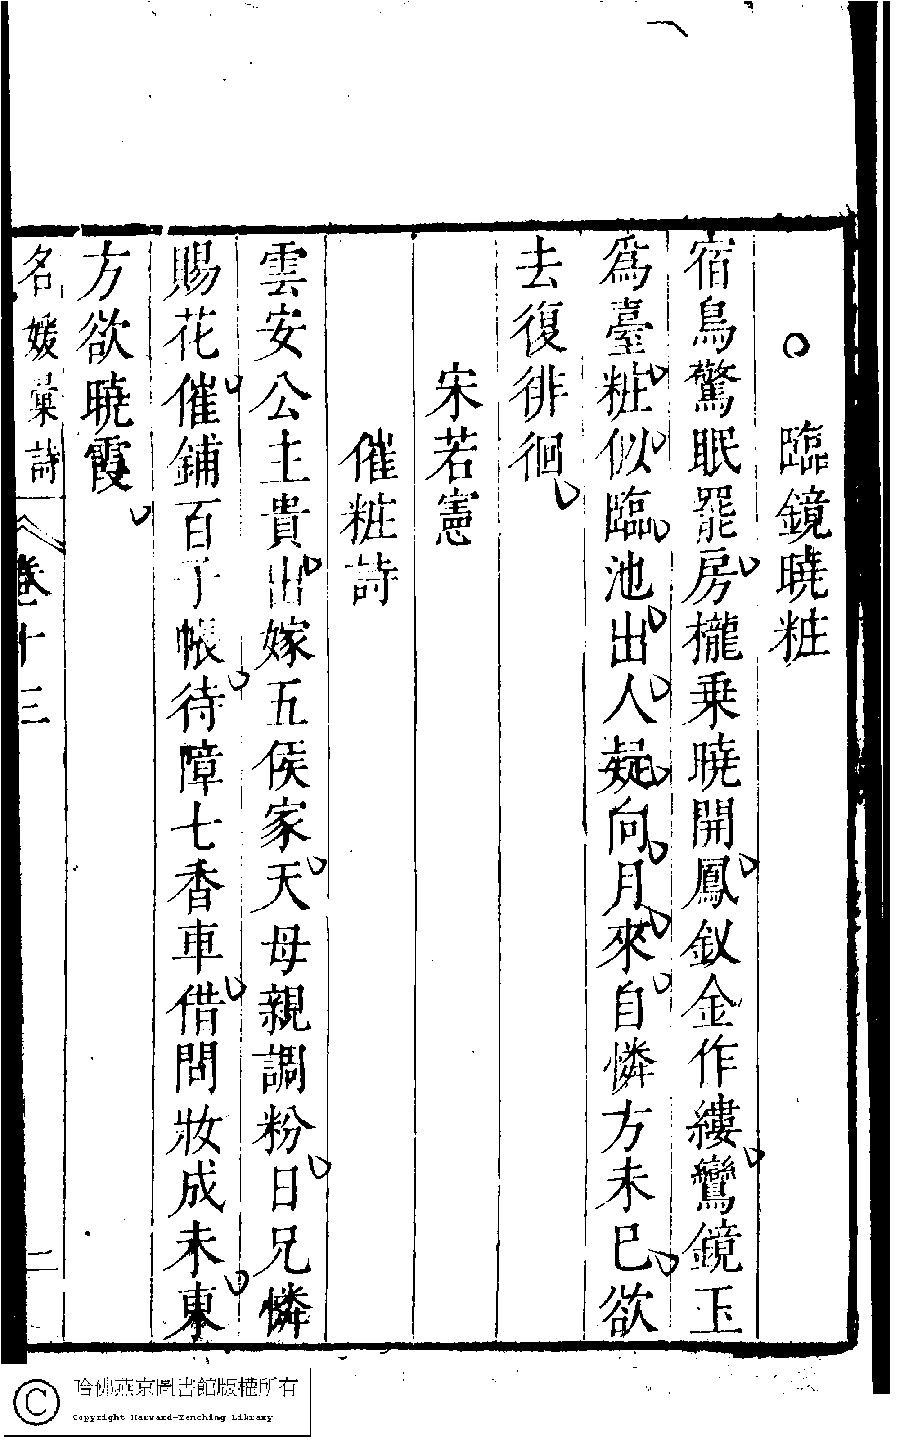 ○臨鏡曉粧
宿鳥驚眠罷房櫳乗曉開鳳釵金作縷鸞鏡玉
爲臺粧似臨池出人疑向月來自憐方未已欲
去復徘徊
宋若憲
催粧詩
雲安公主貴出嫁五侯家天母親調粉日兄憐
賜花催鋪百子帳待障七香車借問妝成未東
方欲曉霞
名媛彙詩 卷十三 二
哈佛燕京圖書館版權所有
Copyright Harvard-Yenching Library